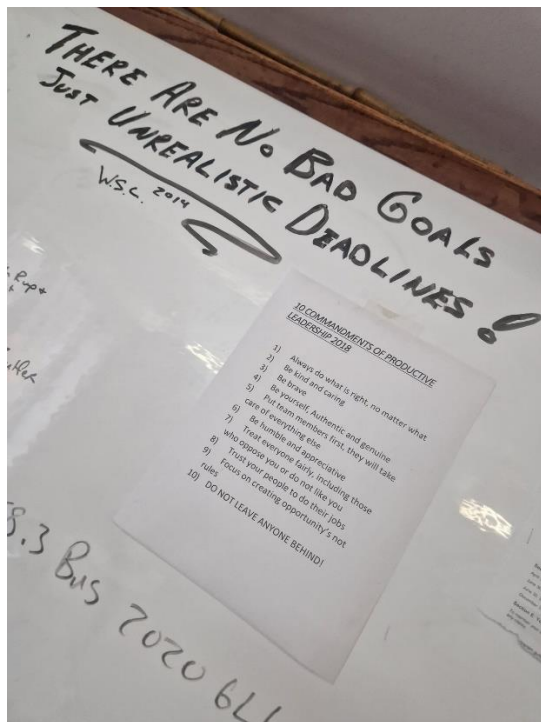 THERE ARE NO BAD GOALS
JUST UNREALISTIC DEADLINES!
W.S.C. 2014
10 COMMANDMENTS OF PRODUCTIVE
LEADERSHIP 2018
1) Always do what is right, no matter what
2) Be kind and caring
3) Be brave
4) Be yourself, Authentic and genuine
5) Put team members first, they will take
care of everything else
6) Be humble and appreciative
7) Treat everyone fairly, including those
who oppose you or do not like you
8) Trust your people to do their jobs
9) Focus on creating opportunity's not
rules
10) DO NOT LEAVE ANYONE BEHIND!
8.3 BUS 2020